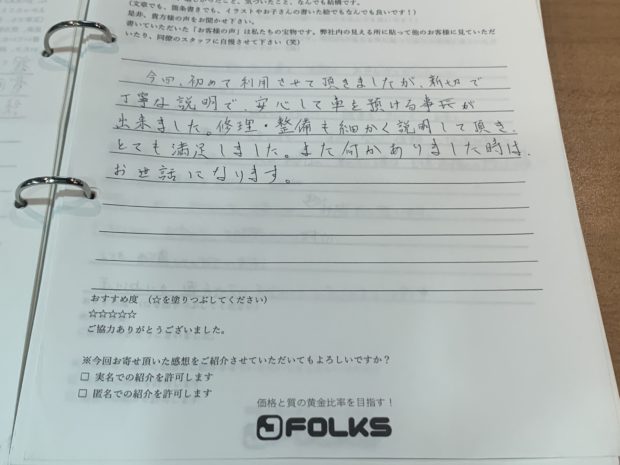 (文章でも、箇条書きでも、イラストやお子さんの書いた絵でもなんでも良いです！)
是非、貴方様の声をお聞かせ下さい。
書いていただいた「お客様の声」は私たちの宝物です。弊社内の見える所に貼って他のお客様に見ていただ
いたり、同僚のスタッフに自慢させて下さい（笑）
今回、初めて利用させて頂きましたが、親切で
丁寧な説明で、安心して車を預ける事が
出来ました。修理・整備も細かく説明して頂き、
とても満足しました。また何かありました時は、
お世話になります。
おすすめ度 （☆を塗りつぶしてください）
☆☆☆☆☆
ご協力ありがとうございました。
※今回お寄せ頂いた感想をご紹介させていただいてもよろしいですか？
□ 実名での紹介を許可します
□ 匿名での紹介を許可します
価格と質の黄金比率を目指す！
FOLKS